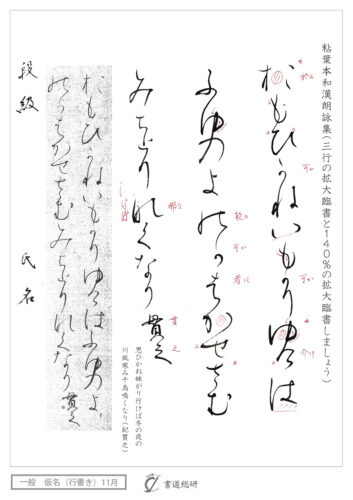 粘葉本和漢朗詠集(三行の拡大臨書と140%の拡大臨書しましょう)
於もひ可ねいも可りゆ介は
於お
可か
可か
介け
ふゆよ能可者かせさむ
能の
可か
者は
みちとり那くなり 貫之
那な
貫之
思ひかね妹がり行けば冬の夜の
川風寒み千鳥鳴くなり(紀貫之)
於もひ可ねいも可りゆ介はふゆよ
能可者かせさむみちとり那くなり 貫之
段級 氏名
一般 仮名(行書き)11月
書道総研